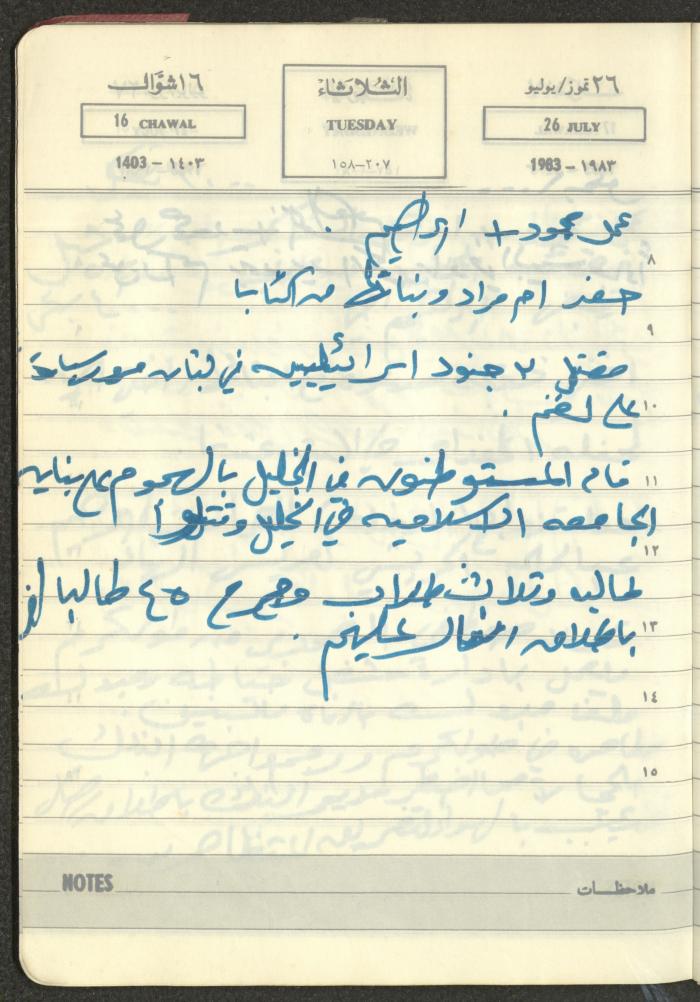 ١٦ شوّال
الثلاثاء
٢٦ تموز/يوليو
16 CHAWAL
TUESDAY
26 JULY
1403 – ١٤٠٣
٢٠٧–١٥٨
1983 – ١٩٨٣
عمل محمود + ابراهيم .
٨
حضر ام مراد وبناتها من كتابا
٩
مقتل ٢ جنود اسرائيليين في لبنان
١٠
على لغم .
١١
قام المستوطنون في الخليل بالهجوم على بناية
الجامعه الاسلاميه في الخليل وقتلوا
١٢
طالبه وثلاث طلاب وجرح ٤٥ طالبا
١٣
باطلاق النار عليهم .
١٤
١٥
NOTES
ملاحظات